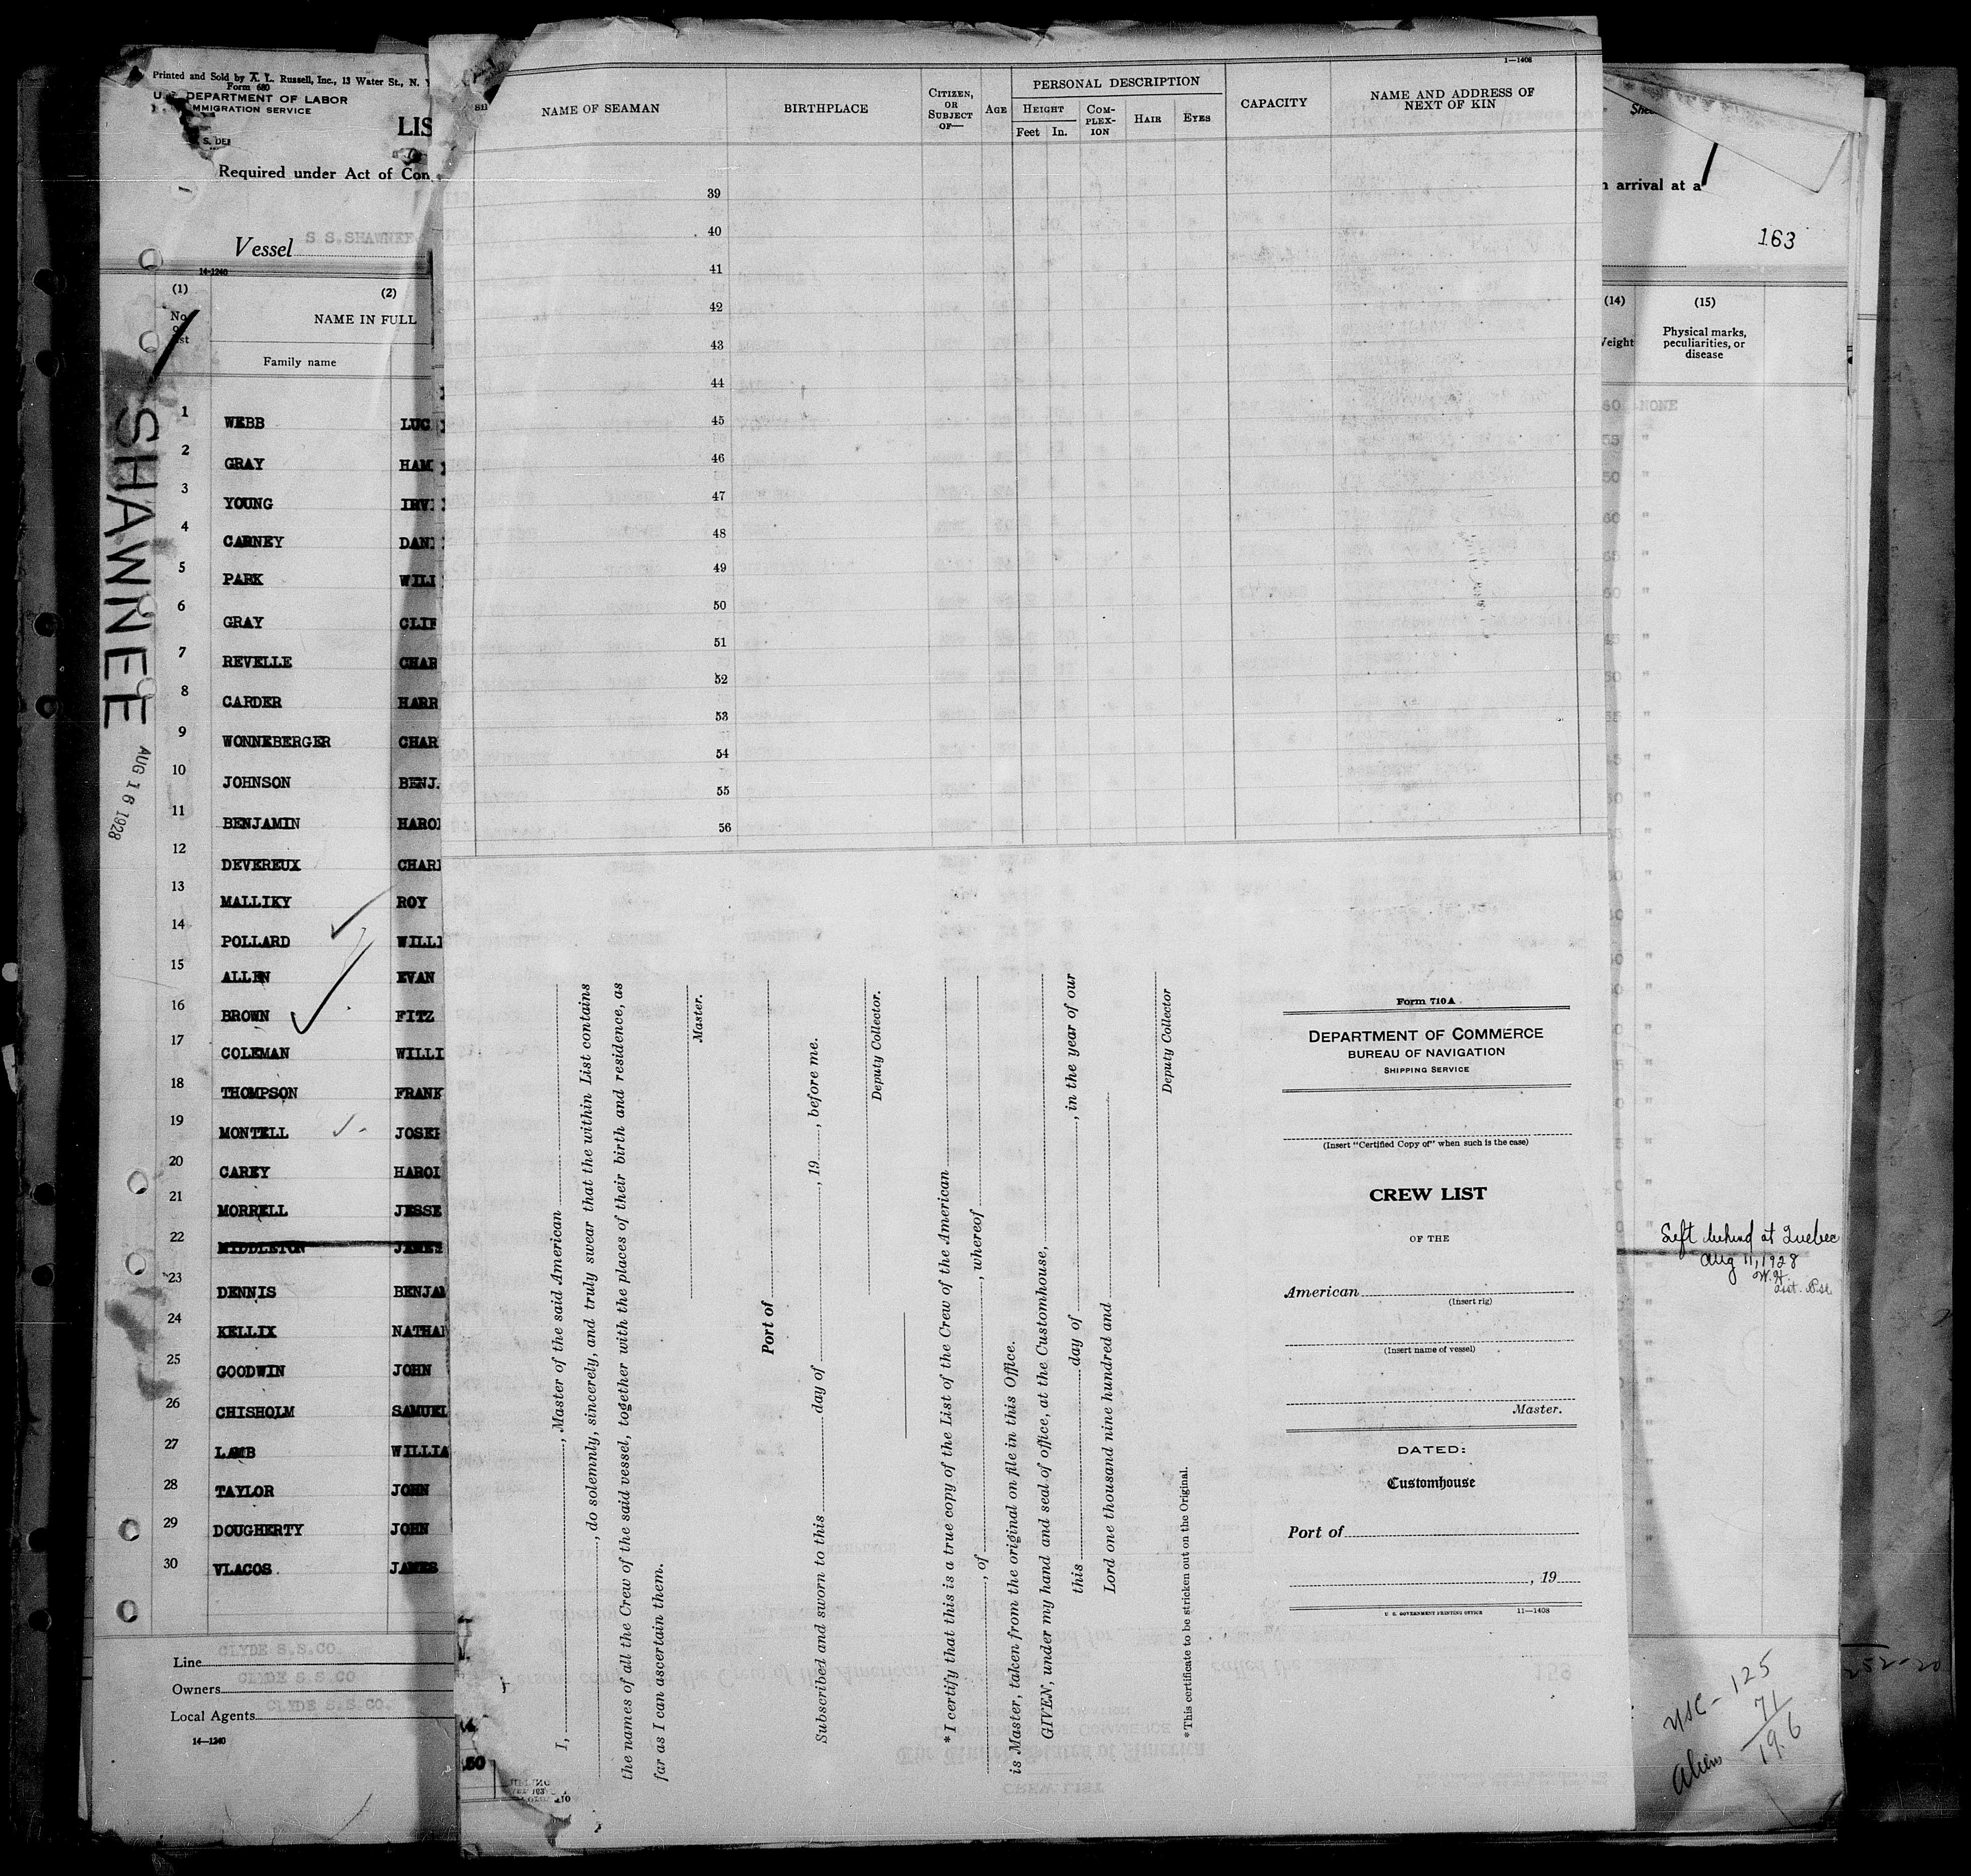 Printed and Sold by A. L. Russell, Inc., 13 Water St., N. Y
Form 680
DEPARTMENT OF LABOR
IMMIGRATION SERVICE
S. DE
LIS
Required under Act of Con
Vessel S S.SHAWNEE
14-1240
(1)
(2)
No
NAME IN FULL
Family name
SHAWNEE
AUG 16 1928
1 WEBB LUC
2 GRAY HAM
3 YOUNG IRVI
4 CARNEY DANI
5 PARK WILI
6 GRAY CLIF
7 REVELLE CHAR
8 CARDER HARR
9 WONNEBERGER CHAR
10 JOHNSON BENJ.
11 BENJAMIN HAROL
12 DEVEREUX CHARL
13 MALLIKY ROY
14 POLLARD WILLI
15 ALLEN EVAN
16 BROWN FITZ
17 COLEMAN WILLI
18 THOMPSON FRANK
19 MONTELL JOSEP
20 CAREY HAROL
21 MORRELL JESSE
22 MIDDLETON JAMES
23 DENNIS BENJAM
24 KELLIX NATHAN
25 GOODWIN JOHN
26 CHISHOLM SAMUEL
27 LAMB WILLIA
28 TAYLOR JOHN
29 DOUGHERTY JOHN
30 VLACOS JAMES
Line CLYDE S.S.CO.
Owners CLYDE S.S.CO
Local Agents CLYDE S.S.CO.
14—1240
1—1408
NAME OF SEAMAN
BIRTHPLACE
CITIZEN, OR SUBJECT OF—
AGE
PERSONAL DESCRIPTION
HEIGHT
Feet In.
COM-PLEX-ION
HAIR
EYES
CAPACITY
NAME AND ADDRESS OF NEXT OF KIN
39
40
41
42
43
44
45
46
47
48
49
50
51
52
53
54
55
56
I, , Master of the said American
, do solemnly, sincerely, and truly swear that the within List contains
the names of all the Crew of the said vessel, together with the places of their birth and residence, as
far as I can ascertain them.
Master.
Port of
Subscribed and sworn to this day of , 19 , before me.
Deputy Collector.
*I certify that this is a true copy of the List of the Crew of the American
, of , whereof
is Master, taken from the original on file in this Office.
GIVEN, under my hand and seal of office, at the Customhouse,
this day of , in the year of our
Lord one thousand nine hundred and
Deputy Collector
*This certificate to be stricken out on the Original.
Form 710A
DEPARTMENT OF COMMERCE
BUREAU OF NAVIGATION
SHIPPING SERVICE
(Insert "Certified Copy of" when such is the case)
CREW LIST
OF THE
American
(Insert rig)
(Insert name of vessel)
Master.
DATED:
Customhouse
Port of
, 19
U. S. GOVERNMENT PRINTING OFFICE 11—1408
arrival at a
163
(14)
(15)
Weight
Physical marks, peculiarities, or disease
60 NONE
Left behind at Quebec
Aug 11, 1928
USC - 125
Aliens 71
196